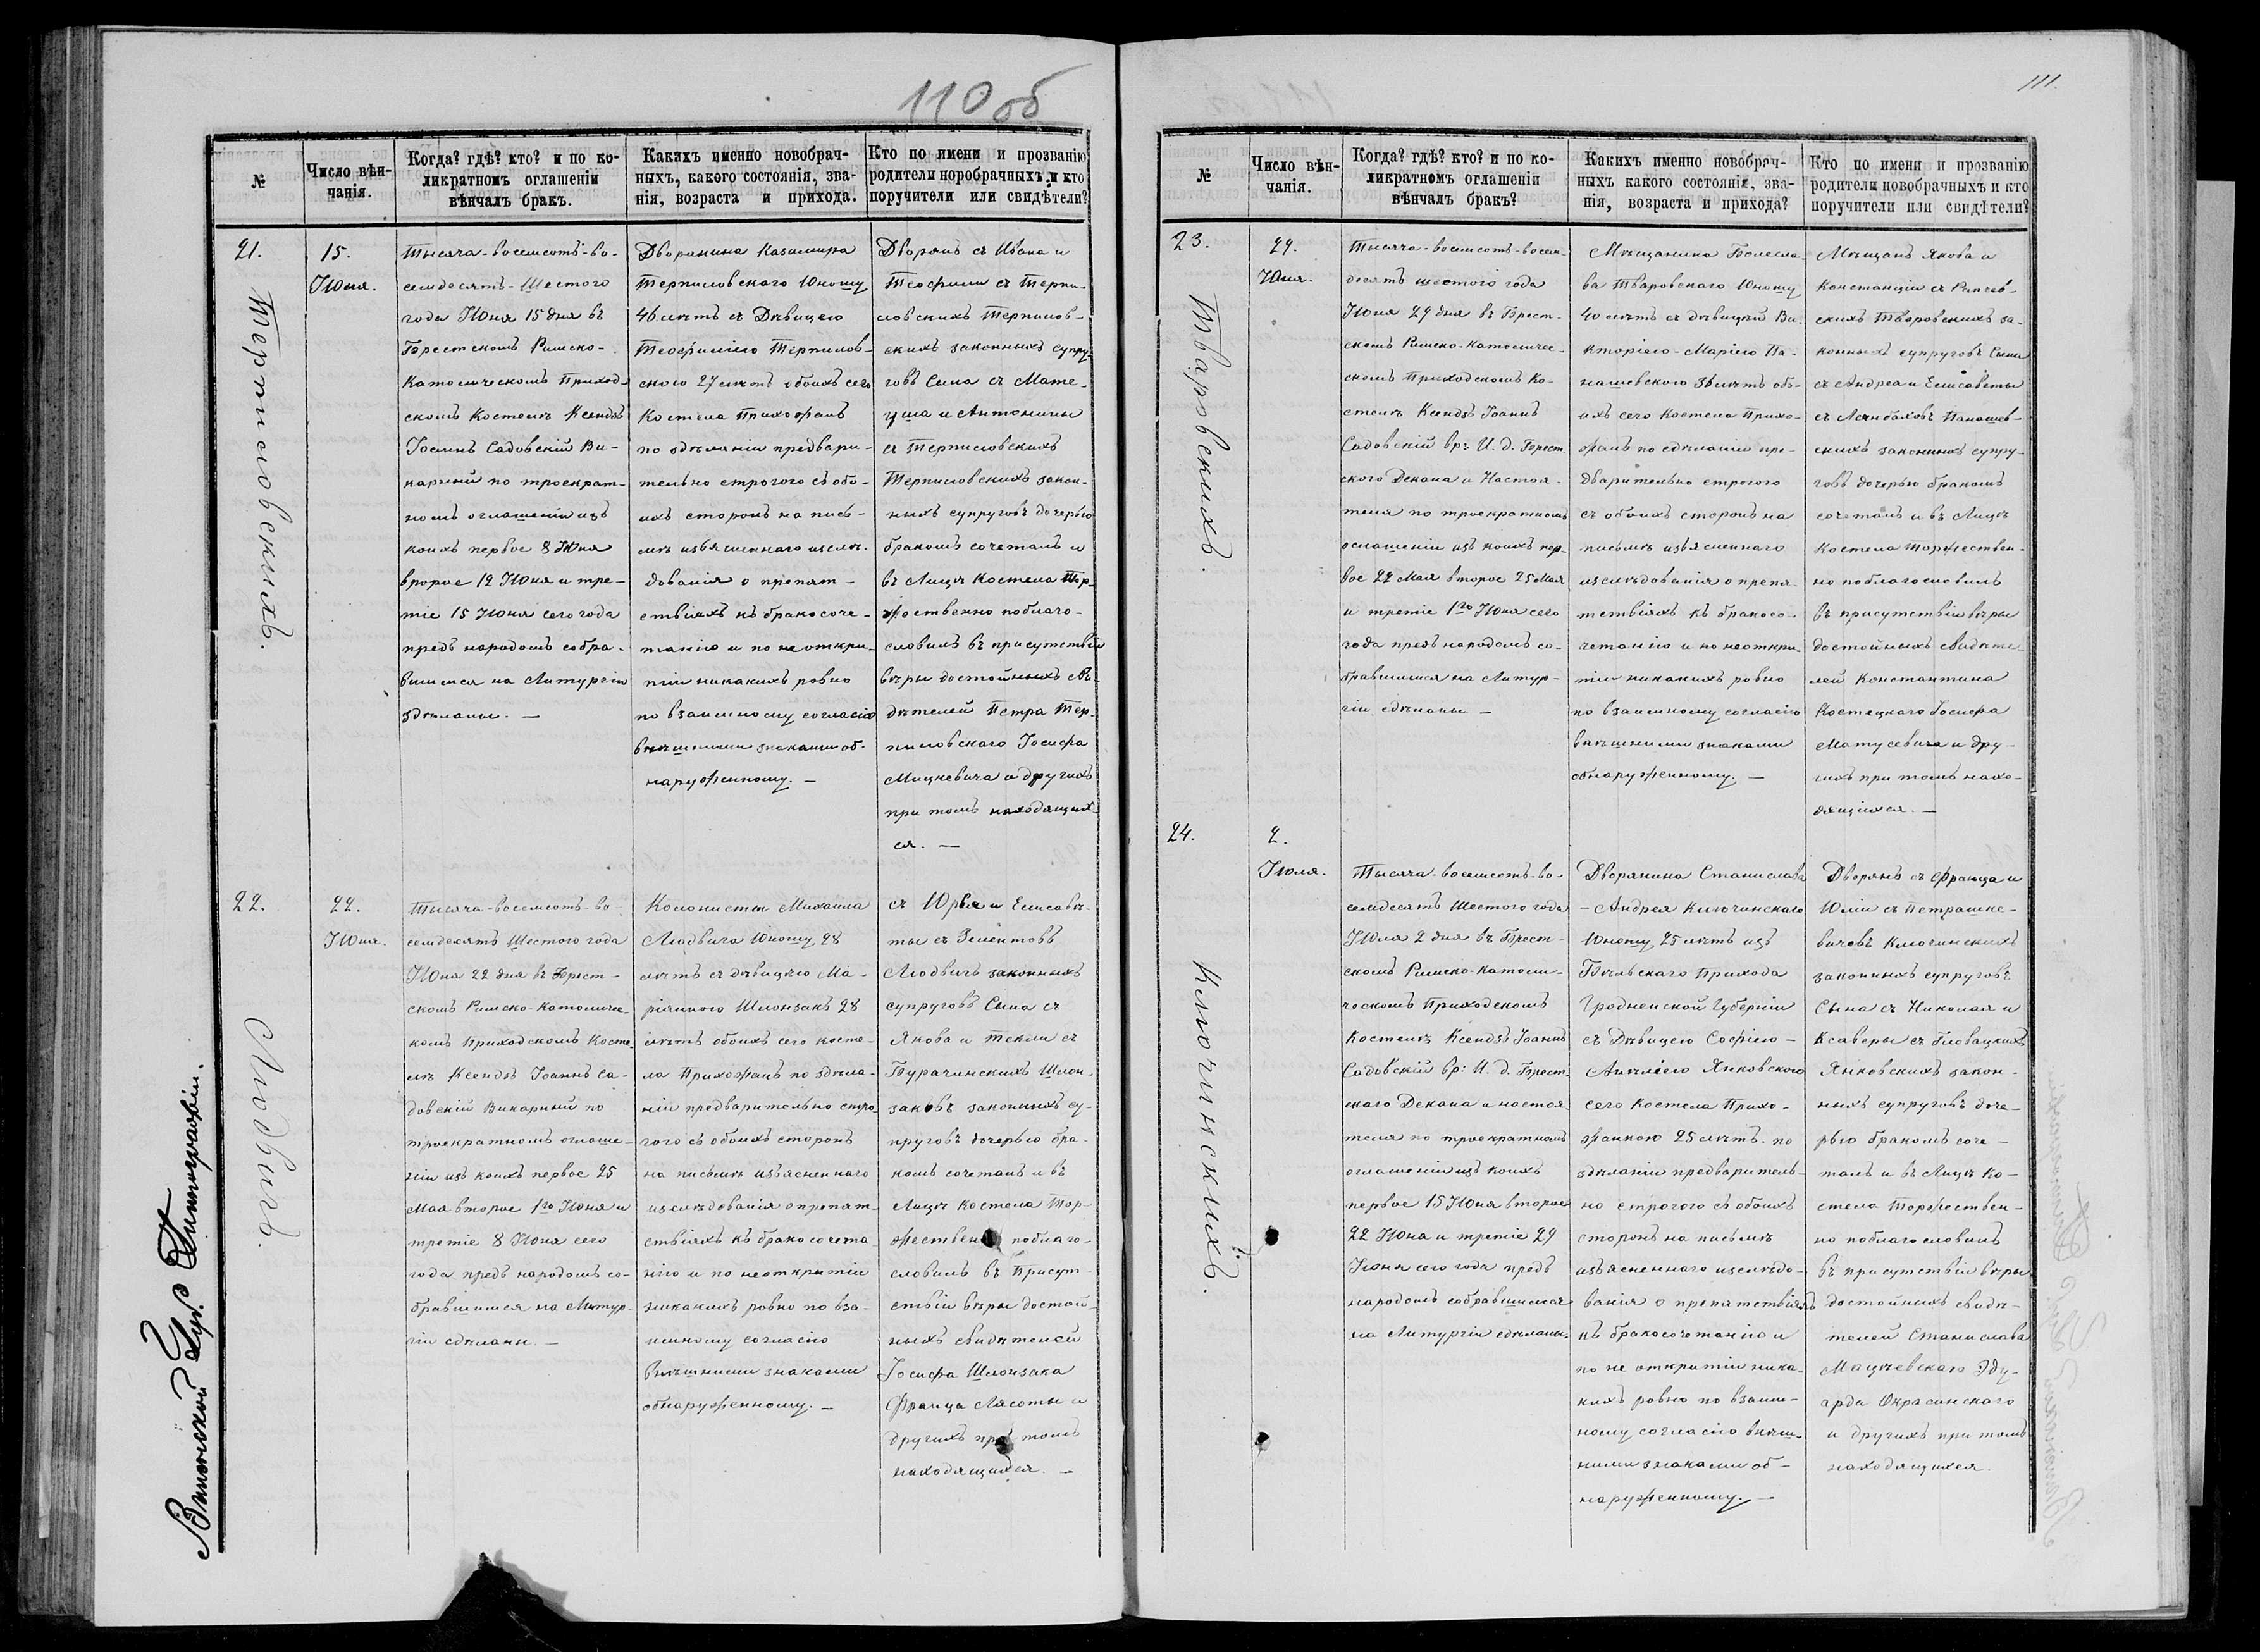 110 об
№
Число вѣн-
чанія.
Когда? гдѣ? кто? и по ко-
ликратномъ оглашеніи
вѣнчалъ бракъ.
Какихъ именно новобрач-
ныхъ, какого состоянія, зва-
нія, возраста и прихода.
Кто по имени и прозванію
родители норобрачныхъ и кто
поручители или свидѣтели?
21.
Терпиловскихъ.
15.
Іюня.
Тысяча-восемсотъ-во-
семдесятъ-Шестого
года Іюня 15 дня въ
Брестскомъ Римско-
Католическомъ Приход-
скомъ Костелѣ Ксендзъ
Іоаннъ Садовскій Ви-
карный по троекрат-
номъ оглашеніи изъ
коихъ первое 8 Іюня
второе 12 Іюня и тре-
тіе 15 Іюня сего года
предъ народомъ собра-
вшимся на Литургіи
здѣланы. —
Дворянина Казимира
Терпиловскаго Юношу
46 лѣтъ съ Дѣвицею
Теофилією Терпилов-
скою 27 лѣтъ обоихъ сего
Костела Прихожанъ
по здѣланіи предвари-
тельно строгого съ обо-
ихъ сторонъ на пись-
мѣ изъясненнаго изслѣ-
дованія о препят-
ствіяхъ къ бракосоче-
танію и по не откры-
тіи никакихъ ровно
по взаимному согласію
внѣшними знаками об-
наруженному. —
Дворянъ съ Ивана и
Теофили съ Терпи-
ловскихъ Терпилов-
скихъ законныхъ супру-
говъ Сына съ Мате-
уша и Антонины
съ Терпиловскихъ
Терпиловскихъ закон-
ныхъ супруговъ дочерью
бракомъ сочеталъ и
въ Лицѣ Костела Тор-
жественно поблаго-
словилъ въ присутствіи
вѣры достойныхъ Сви-
дѣтелей Петра Тер-
пиловскаго Іосифа
Мицкевича и другихъ
при томъ находящих-
ся. —
22.
Людвигъ.
22.
Іюня.
Тысяча-восемсотъ-во-
семдесятъ Шестого года
Іюня 22 дня въ Брест-
скомъ Римско-Католичес-
комъ Приходскомъ Косте-
лѣ Ксендзъ Іоаннъ Са-
довскій Викарный по
троекратномъ оглаше-
ніи изъ коихъ первое 25
Мая второе 1го Іюня и
третіе 8 Іюня сего
года предъ народомъ со-
бравшимся на Литур-
гіи сдѣланы. —
Колонисты Михаила
Людвига Юношу 28
лѣтъ съ дѣвицею Ма-
ріянною Шлонзакъ 28
лѣтъ обоихъ сего косте-
ла Прихожанъ по здѣла-
ніи предварительно стро-
гого съ обоихъ сторонъ
на письмѣ изъясненнаго
изслѣдованія о препят-
ствіяхъ къ бракосочета
нію и по неоткрытіи
никакихъ ровно по вза-
имному согласію
внѣшними знаками
обнаруженному. —
съ Юрія и Елисавѣ-
ты съ Зелентовъ
Людвигъ законныхъ
супруговъ Сына съ
Якова и Текли съ
Бурачинскихъ Шлон-
заковъ законныхъ су-
пруговъ дочерью бра-
комъ сочеталъ и въ
Лицѣ Костела Тор-
жественно поблаго-
словилъ въ Присут-
ствіи вѣры достой-
ныхъ свидѣтелей
Іосифа Шлонзака
Франца Лясоты и
другихъ при томъ
находящихся. —
Виленской Губ. Типографіи.
111.
№
Число вѣн-
чанія.
Когда? гдѣ? кто? и по ко-
ликратномъ оглашеніи
вѣнчалъ бракъ?
Какихъ именно новобрач-
ныхъ какого состоянія, зва-
нія, возраста и прихода?
Кто по имени и прозванію
родители новобрачныхъ и кто
поручители или свидѣтели?
23.
Тваровскихъ.
29.
Іюня.
Тысяча-восемсотъ-восем-
десятъ шестого года
Іюня 29 дня въ Брест-
скомъ Римско-Католичес-
скомъ Приходскомъ Ко-
стелѣ Ксендзъ Іоаннъ
Садовскій вр: И. д. Брест.
ского Декана и Настоя-
теля по троекратномъ
оглашеніи изъ коихъ пер-
вое 22 Мая второе 25 Мая
и третіе 1го Іюня сего
года предъ народомъ со-
бравшимся на Литур-
гіи сдѣланы —
Мѣщанина Болесла-
ва Тваровскаго Юношу
40 лѣтъ съ дѣвицей Ви-
кторією-Марією Па-
нашевского 36 лѣтъ обо-
ихъ сего Костела Прихо-
жанъ по сдѣланію пре-
дварительно строгого
съ обоихъ сторонъ на
письмѣ изъясненнаго
изслѣдованія о препя-
тствіяхъ къ бракосо-
четанію и по неоткры-
тіи никакихъ ровно
по взаимному согласію
внѣшними знаками
обнаруженному. —
Мѣщанъ Якова и
Констанціи съ
скихъ Тваровскихъ за-
конныхъ супруговъ Сына
съ Андрея и Елисаветы
съ Панашев-
скихъ законныхъ супру-
говъ дочерью бракомъ
сочеталъ и въ Лицѣ
Костела Торжествен-
но поблагословилъ
въ присутствіи вѣры
достойныхъ свидѣте-
лей Константина
Костецкаго Іосифа
Матусевича и дру-
гихъ при томъ нахо-
дящихся. —
24.
Ключинскихъ.
2.
Іюля.
Тысяча-восемсотъ-во-
семдесятъ Шестого года
Іюля 2 дня въ Брест-
скомъ Римско-Католи-
ческомъ Приходскомъ
Костелѣ Ксендзъ Іоаннъ
Садовскій вр: И. д. Брест.
скаго Декана и настоя
теля по троекратномъ
оглашеніи изъ коихъ
первое 15 Іюня второе
22 Іюна и третіе 29
Іюня сего года предъ
народомъ собравшимся
на Литургіи сдѣланы.
Дворянина Станислава
-Андрея Ключинскаго
Юношу 25 лѣтъ изъ
Бѣльскаго Прихода
Гродненской Губерніи
съ Дѣвицею Софією-
Амелією Янковского
сего Костела Прихо-
жанкою 25 лѣтъ. по
здѣланіи предваритель-
но строгого съ обоихъ
сторонъ на письмѣ
изъясненнаго изслѣдо-
ванія о препятствіяхъ
къ бракосочетанію и
по не открытіи ника-
кихъ ровно по взаим-
ному согласію внѣш-
ними знаками об-
наруженному. —
Дворянъ съ Франца и
Юліи съ Петрашке-
вичевъ Ключинскихъ
законныхъ супруговъ
Сына съ Николая и
Ксаверы съ Гловацкихъ
Янковскихъ закон-
ныхъ супруговъ доче-
рью бракомъ соче-
талъ и въ Лицѣ Ко-
стела Торжествен-
но поблагословилъ
въ присутствіи вѣры
достойныхъ свидѣ-
телей Станислава
Мацѣевскаго Эду-
арда Окрасинскаго
и другихъ при томъ
находящихся.